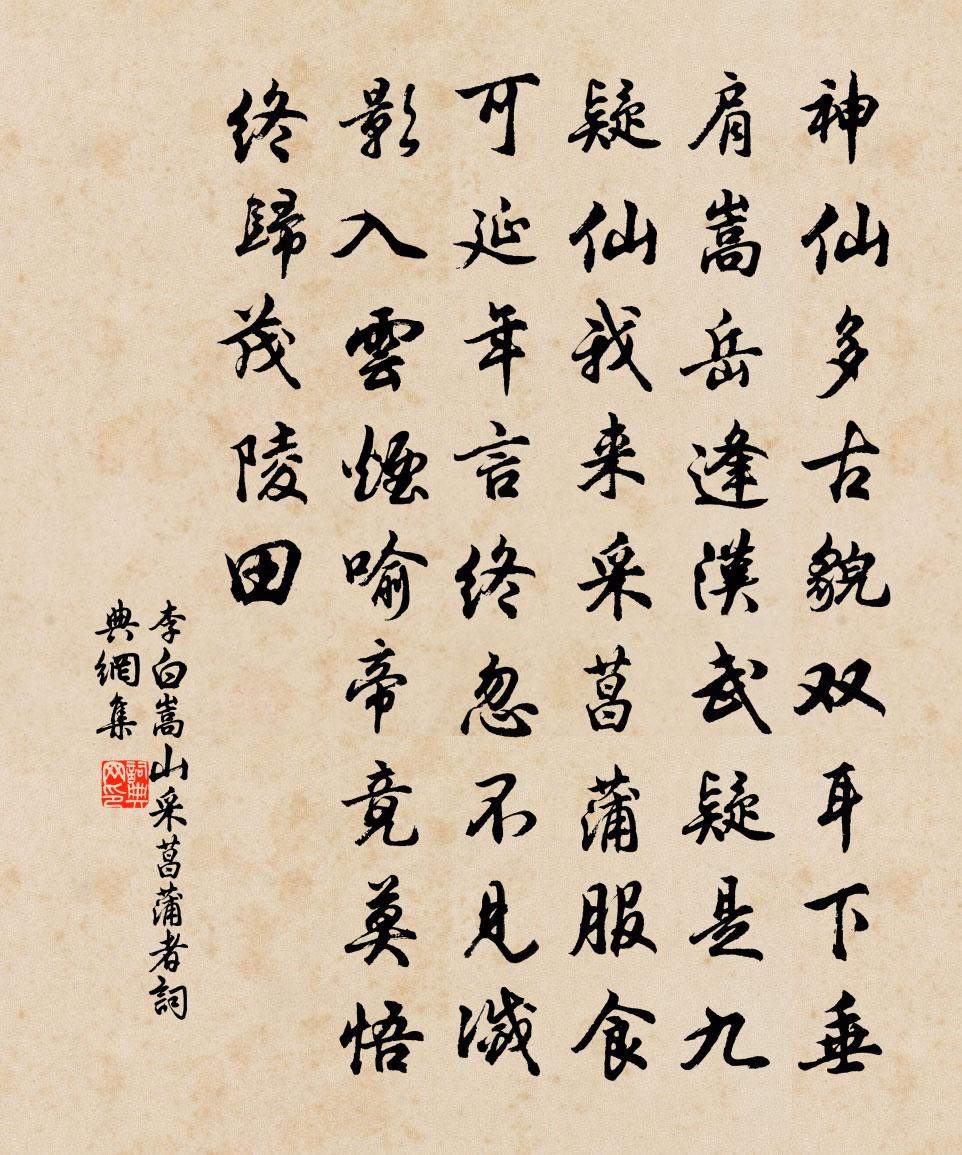 神仙多古貌双耳下垂
肩嵩岳逢漢武疑是九
疑仙我来采菖蒲服食
可延年言终忽不見滅
影入雲煙喻帝竟莫悟
终歸茂陵田
李白嵩山采菖蒲者詞
典網集
詞典
网印